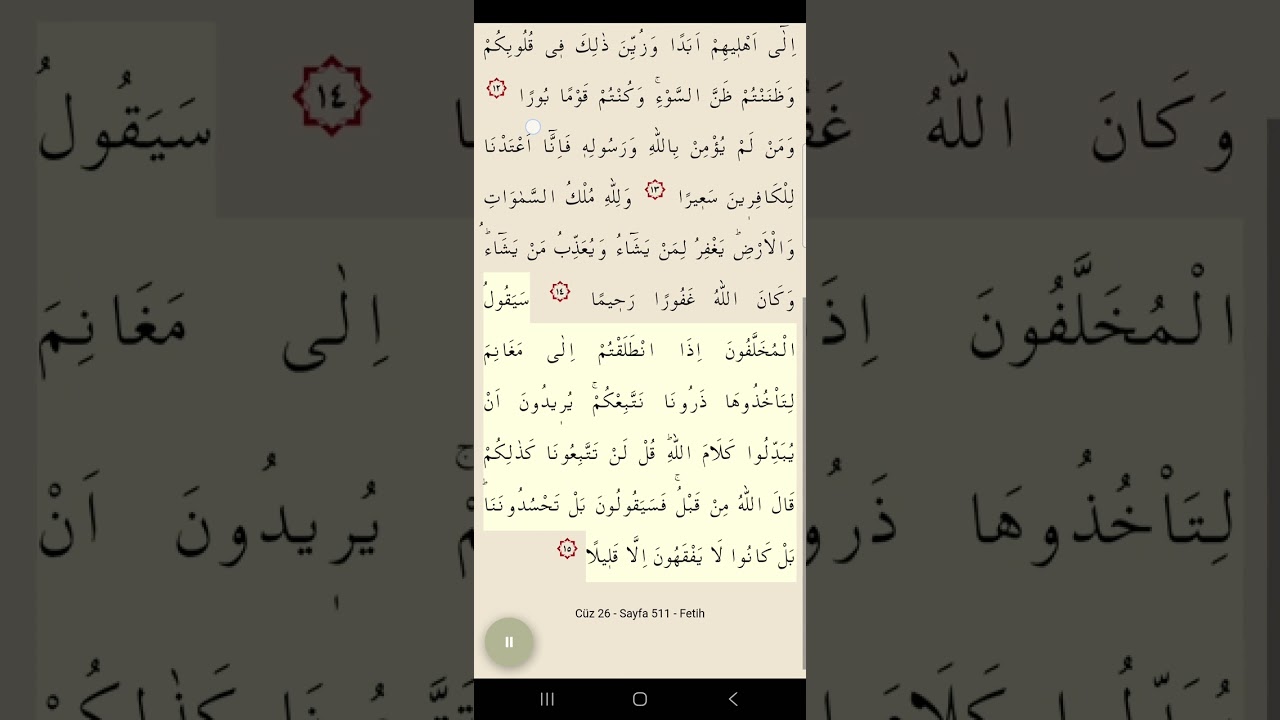 اِلٰٓى اَهْلٖيهِمْ اَبَدًا وَزُيِّنَ ذٰلِكَ فٖى قُلُوبِكُمْ
وَظَنَنْتُمْ ظَنَّ السَّوْءِۚ وَكُنْتُمْ قَوْمًا بُورًا ١٢
وَمَنْ لَمْ يُؤْمِنْ بِاللّٰهِ وَرَسُولِهٖ فَاِنَّٓا اَعْتَدْنَا
لِلْكَافِرٖينَ سَعٖيرًا ١٣ وَلِلّٰهِ مُلْكُ السَّمٰوَاتِ
وَالْاَرْضِؕ يَغْفِرُ لِمَنْ يَشَٓاءُ وَيُعَذِّبُ مَنْ يَشَٓاءُؕ
وَكَانَ اللّٰهُ غَفُورًا رَحٖيمًا ١٤ سَيَقُولُ
الْمُخَلَّفُونَ اِذَا انْطَلَقْتُمْ اِلٰى مَغَانِمَ
لِتَاْخُذُوهَا ذَرُونَا نَتَّبِعْكُمْۚ يُرٖيدُونَ اَنْ
يُبَدِّلُوا كَلَامَ اللّٰهِؕ قُلْ لَنْ تَتَّبِعُونَا كَذٰلِكُمْ
قَالَ اللّٰهُ مِنْ قَبْلُۚ فَسَيَقُولُونَ بَلْ تَحْسُدُونَنَاؕ
بَلْ كَانُوا لَا يَفْقَهُونَ اِلَّا قَلٖيلًا ١٥
Cüz 26 - Sayfa 511 - Fetih